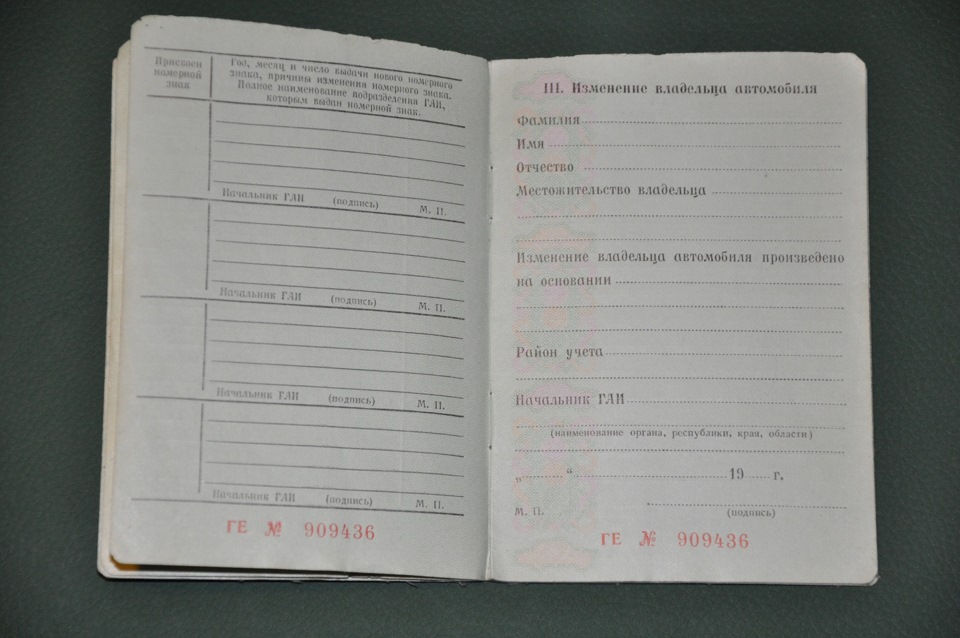 Присвоен
номерной
знак
Год, месяц и число выдачи нового номерного
знака, причины изменения номерного знака.
Полное наименование подразделения ГАИ,
которым выдан номерной знак.
Начальник ГАИ (подпись) М. П.
Начальник ГАИ (подпись) М. П.
Начальник ГАИ (подпись) М. П.
Начальник ГАИ (подпись) М. П.
ГЕ № 909436
III. Изменение владельца автомобиля
Фамилия
Имя
Отчество
Местожительство владельца
Изменение владельца автомобиля произведено
на основании
Район учета
Начальник ГАИ
(наименование органа, республики, края, области)
„ “ 19 г.
М. П. (подпись)
ГЕ № 909436